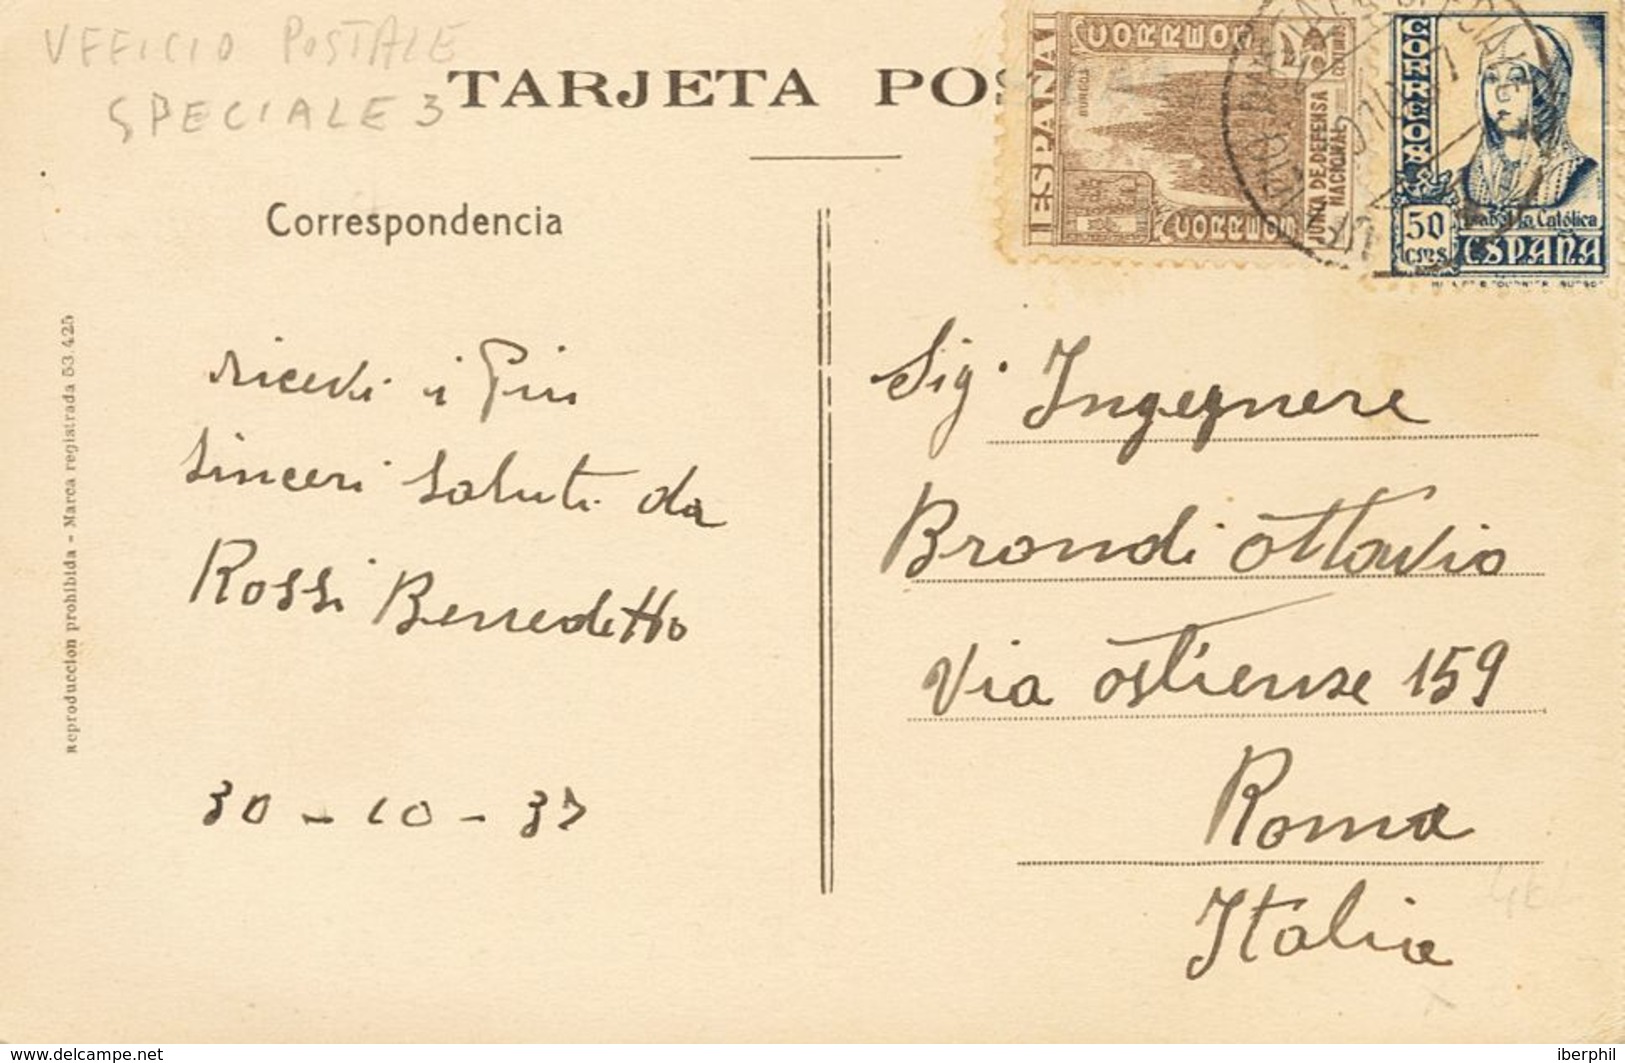 UFFICIO POSTALE
SPECIALE 3
TARJETA POS
Correspondencia
ricevi i Piu
sinceri saluti da
Rossi Benedetto
30 - 10 - 37
Reproduccion prohibida - Marca registrada 53.425
ESPAÑA
CORREOS
CENTIMOS
BURGOS
JUNTA DE DEFENSA
NACIONAL
CORREOS
CORREOS
50
cms
Isabel la Católica
ESPAÑA
Sig. Ingegnere
Brondi Ottavio
Via Ostiense 159
Roma
Italia
www.delcampe.net
iberphil